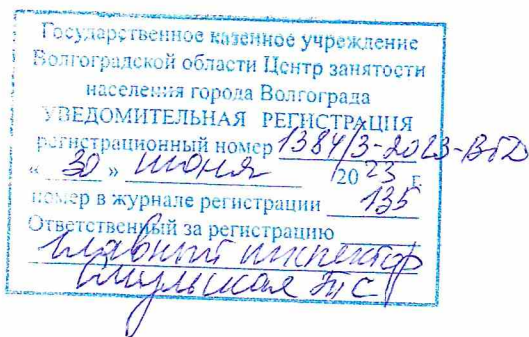 Государственное казенное учреждение
Волгоградской области Центр занятости
населения города Волгограда
УВЕДОМИТЕЛЬНАЯ РЕГИСТРАЦИЯ
регистрационный номер 1384/3-2023-ВГД
« 30 » июня 2023 г.
номер в журнале регистрации 135
Ответственный за регистрацию
главный инспектор